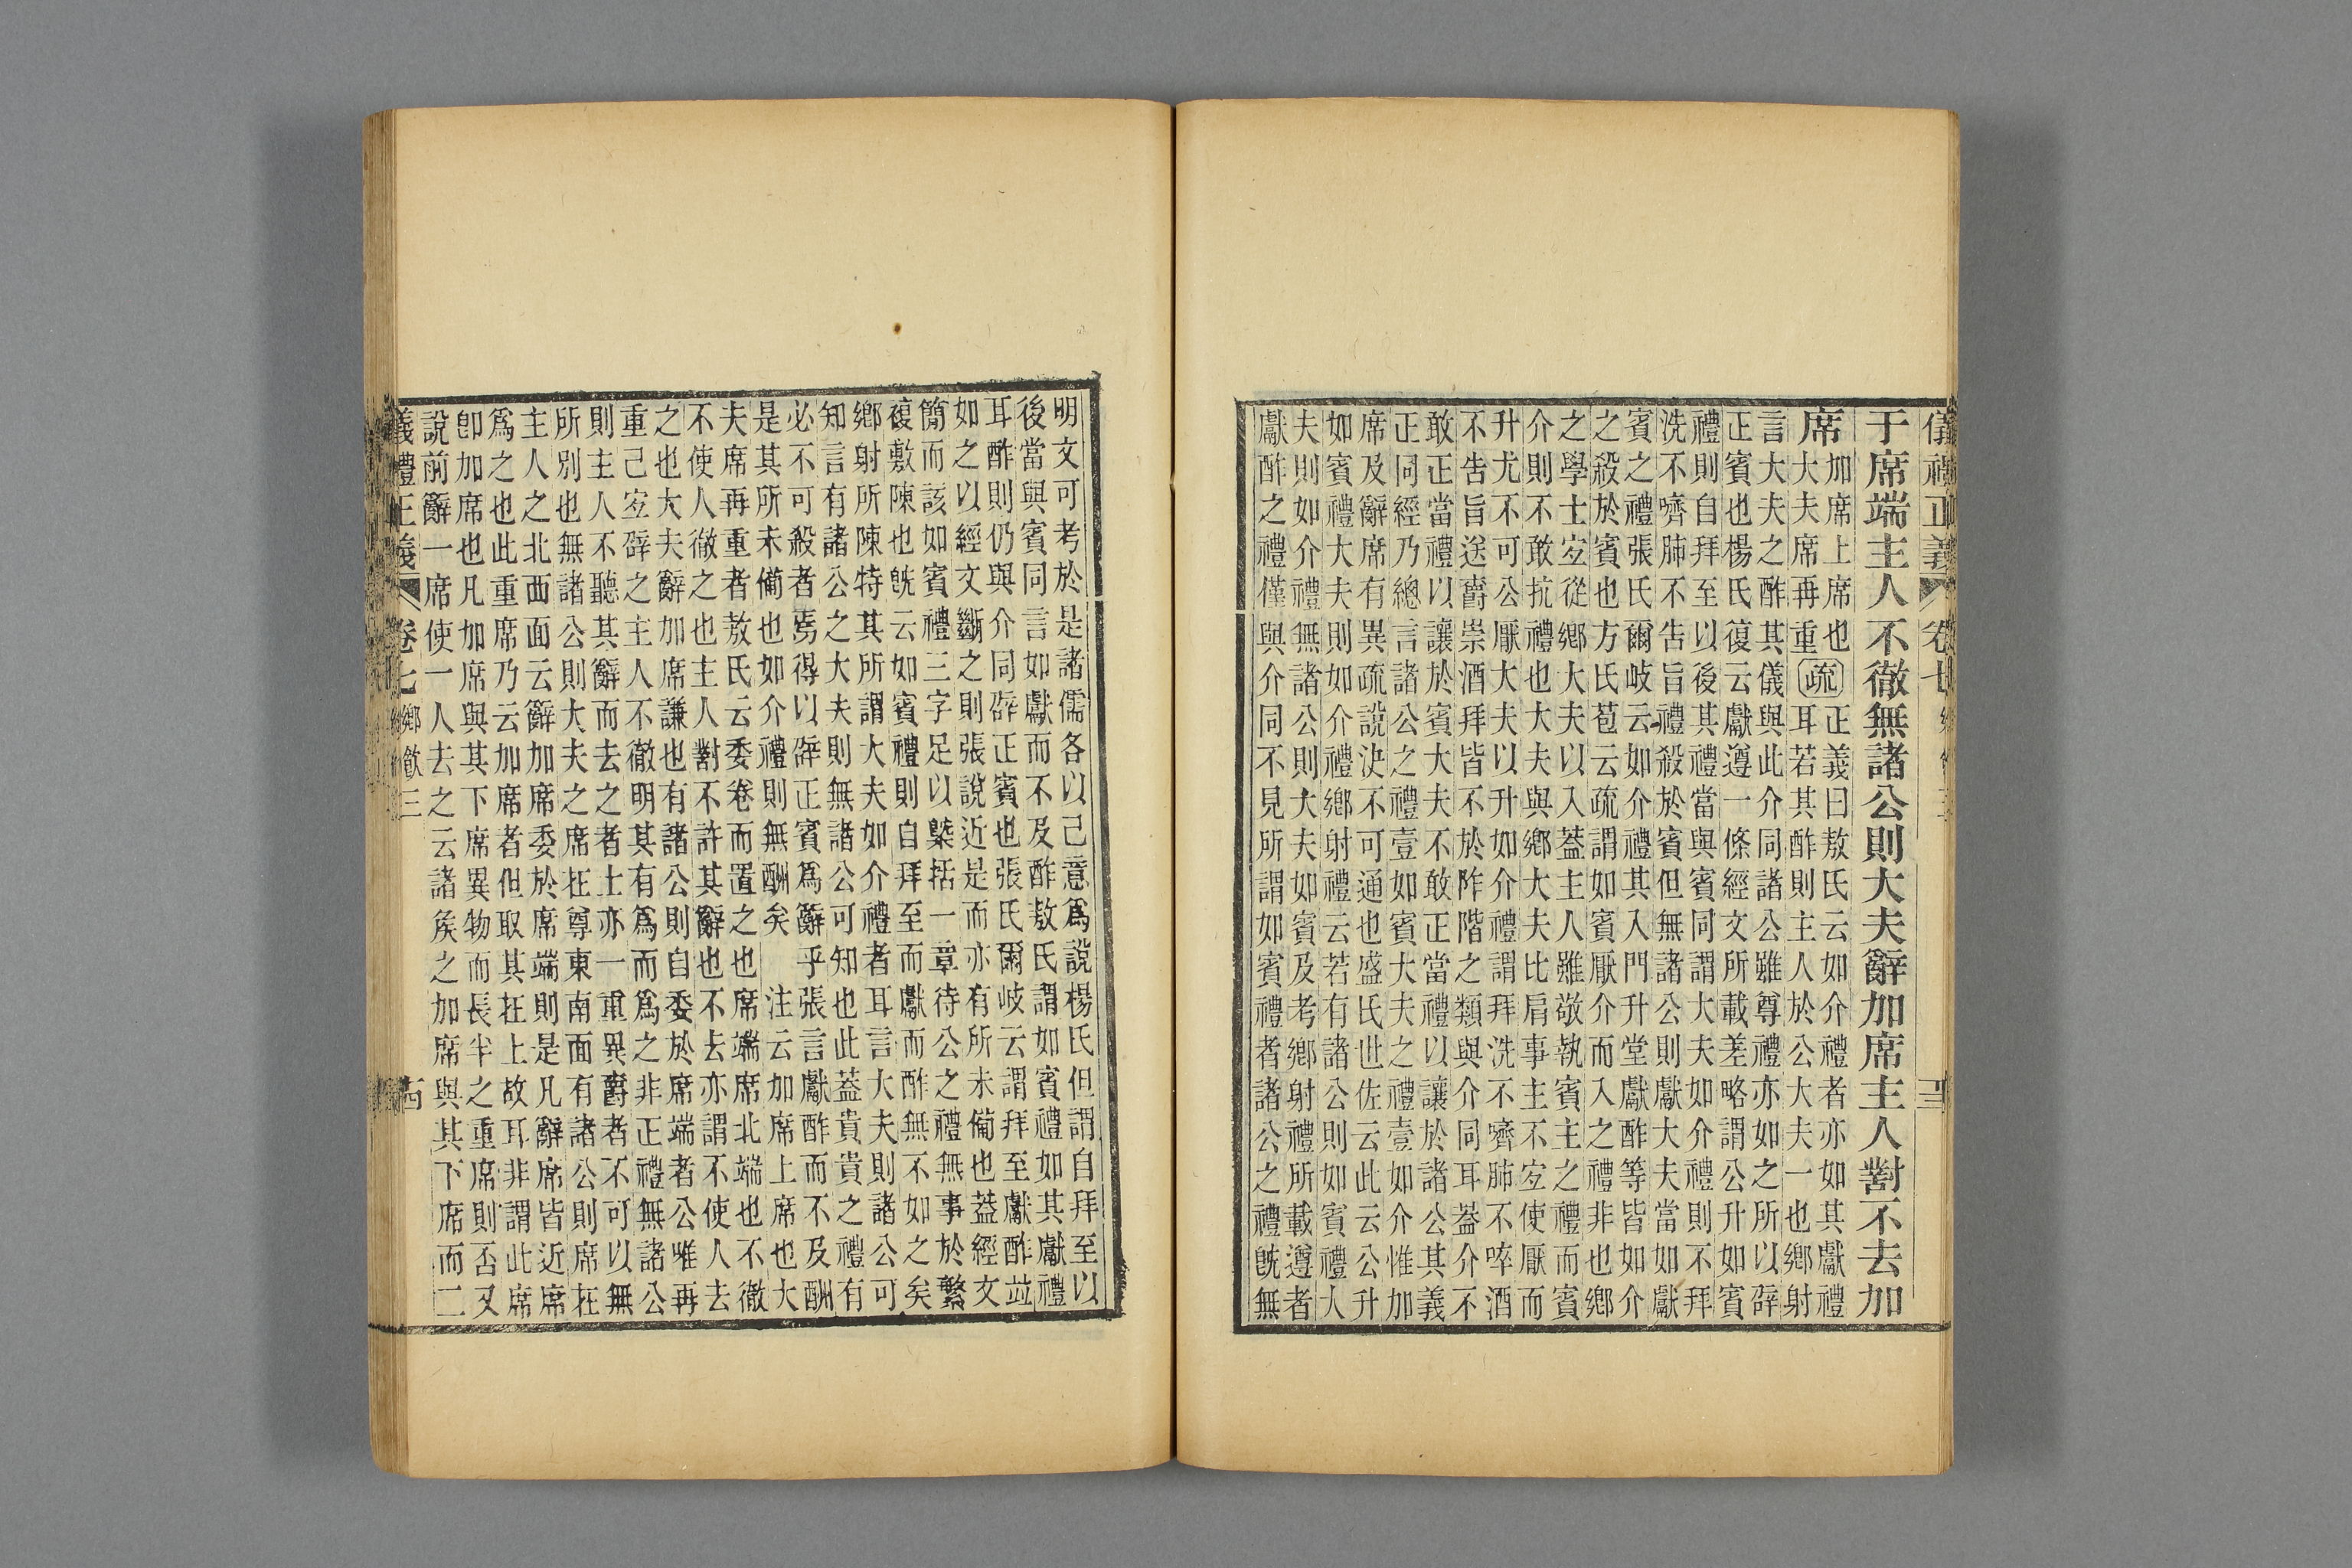 儀禮正義 卷七
于席端主人不徹無諸公則大夫辭加席主人對不去加
席
加席上席也
大夫席再重
疏
正義曰敖氏云如介禮者亦如其獻禮
耳若其酢則主人於公大夫一也鄉射
言大夫之酢其儀與此介同諸公雖尊禮亦如之所以辟
正賓也楊氏復云獻遵一條經文所載差略謂公升如賓
禮則自拜至以後其禮當與賓同謂大夫如介禮則不拜
洗不嚌肺不告旨禮殺於賓但無諸公則獻大夫當如獻
賓之禮張氏爾岐云如介禮其入門升堂獻酢等皆如介
之殺於賓也方氏苞云疏謂如賓厭介而入之禮非也鄉
之學士宜從鄉大夫以入蓋主人雖敬執賓主之禮而賓
介則不敢抗禮也大夫與鄉大夫比肩事主不宜使厭而
升尤不可公厭大夫以升如介禮謂拜洗不嚌肺不啐酒
不告旨送爵崇酒拜皆不於阼階之類與介同耳蓋介不
敢正當禮以讓於賓大夫不敢正當禮以讓於諸公其義
正同經乃總言諸公之禮壹如賓大夫之禮壹如介惟加
席及辭席有異疏說決不可通也盛氏世佐云此云公升
如賓禮大夫則如介禮鄉射禮云若有諸公則如賓禮人
夫則如介禮無諸公則大夫如賓及考鄉射禮所載遵者
獻酢之禮僅與介同不見所謂如賓禮者諸公之禮旣無
明文可考於是諸儒各以己意爲說楊氏但謂自拜至以
後當與賓同言如獻而不及酢敖氏謂如賓禮如其獻禮
耳酢則仍與介同辟正賓也張氏爾岐云謂拜至獻酢竝
如之以經文斷之則張說近是而亦有所未備也蓋經文
簡而該如賓禮三字足以檃括一章待公之禮無事於繁
複敷陳也旣云如賓禮則自拜至而獻而酢無不如之矣
鄉射所陳特其所謂大夫如介禮者耳言大夫則諸公可
知言有諸公之大夫則無諸公可知也此蓋貴貴之禮有
必不可殺者焉得以辟正賓爲辭乎張言獻酢而不及酬
是其所未備也如介禮則無酬矣 注云加席上席也大
夫席再重者敖氏云委卷而置之也席端席北端也不徹
不使人徹之也主人對不許其辭也不去亦謂不使人去
之也大夫辭加席謙也有諸公則自委於席端者公唯再
重己宜辟之主人不徹明其有爲而爲之非正禮無諸公
則主人不聽其辭而去之者士亦一重異爵者不可以無
所別也無諸公則大夫之席在尊東南面有諸公則席在
主人之北西面云辭加席委於席端則是凡辭席皆近席
爲之也此重席乃云加席者但取其在上故耳非謂此席
卽加席也凡加席與其下席異物而長半之重席則否又
說前辭一席使一人去之云諸侯之加席與其下席而二
儀禮正義 卷七鄉飲三